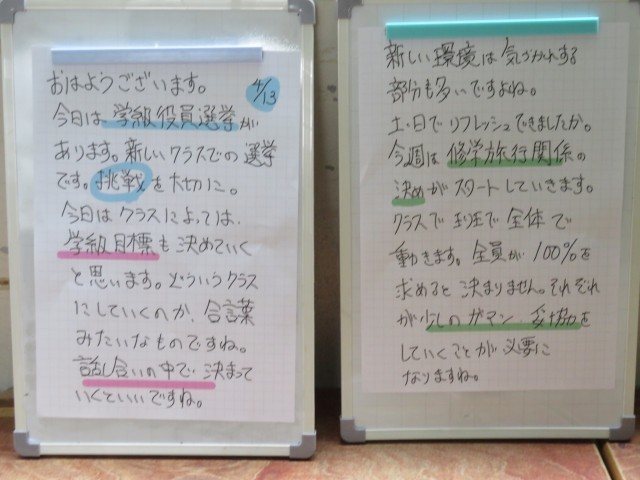 おはようございます。
4/13
今日は学級役員選挙が
あります。新しいクラスでの選挙
です。挑戦を大切に。
今日はクラスによっては、
学級目標も決めていく
と思います。どういうクラス
にしていくのか、合言葉
みたいなものですね。
話し合いの中で決まって
いくといいですね。
新しい環境は気づかれする
部分も多いですよね。
土・日でリフレッシュできましたか。
今週は修学旅行関係の
決めがスタートしていきます。
クラスで班で全体で
動きます。全員が100%を
求めると決まりません。それぞれ
が少しのガマン、妥協を
していくことが必要に
なりますね。